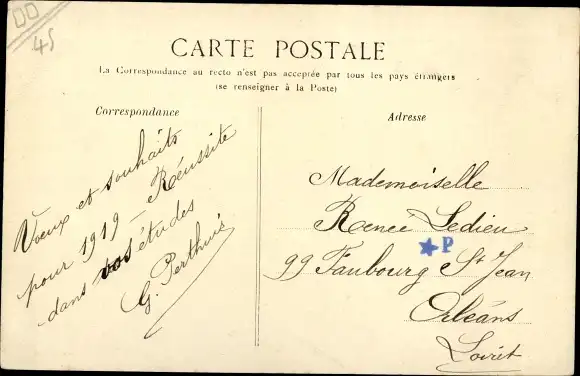 45
CARTE POSTALE
La Correspondance au recto n'est pas acceptée par tous les pays étrangers
(se renseigner à la Poste)
Correspondance
Voeux et souhaits
pour 1919 - Réussite
dans vos études
G. Perthuis
Adresse
Mademoiselle
Renée Ledieu
P
99 Faubourg St Jean
Orléans
Loiret